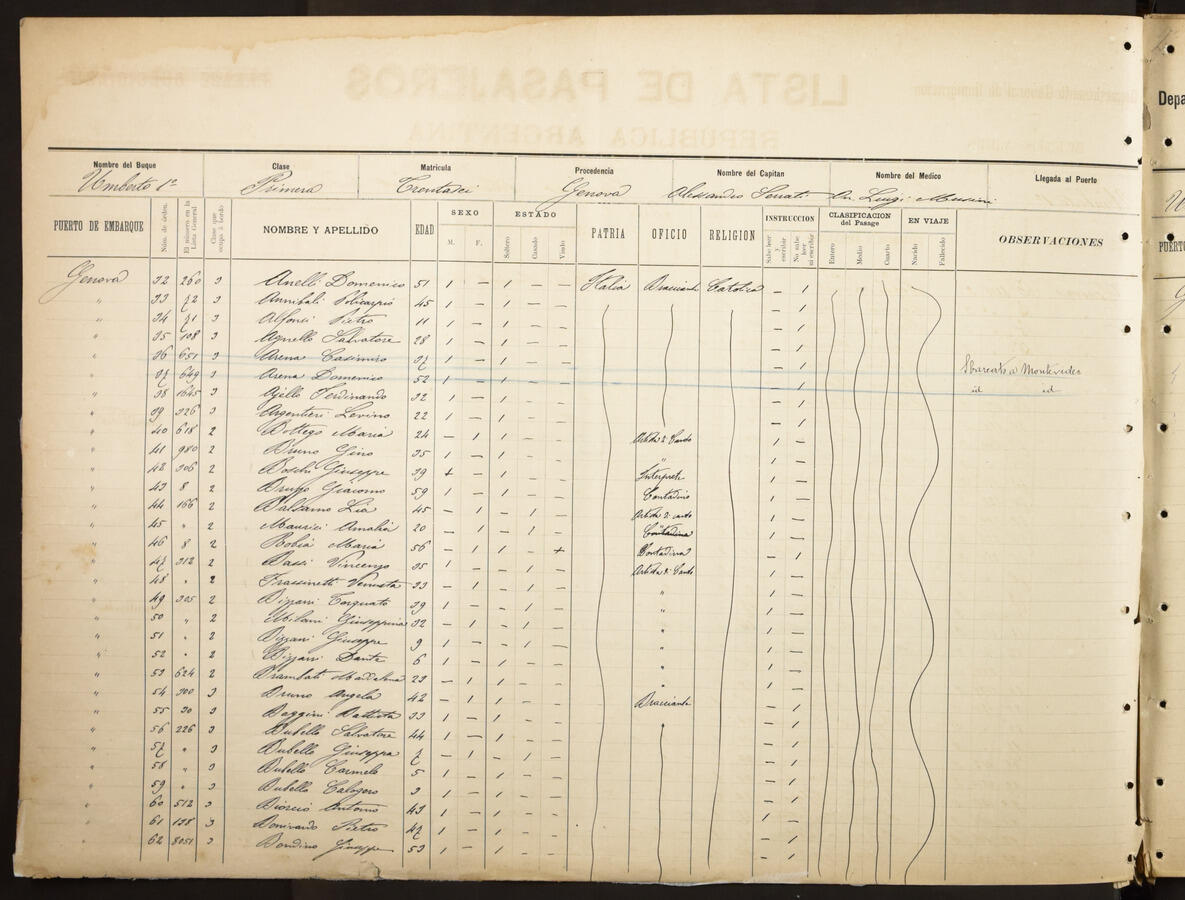 LISTA DE PASAJEROS
REPUBLICA ARGENTINA
Nombre del Buque Clase Matricula Procedencia Nombre del Capitan Nombre del Medico Llegada al Puerto
Umberto 1º Primera Genova Alessandro Serrati Dr. Luigi
PUERTO DE EMBARQUE Núm. de órden. El número en la Lista General Clase que ocupa á bordo NOMBRE Y APELLIDO EDAD SEXO M. F. ESTADO Soltero Casado Viudo PATRIA OFICIO RELIGION INSTRUCCION Sabe leer y escribir No sabe leer ni escribir CLASIFICACION del Pasage Entero Medio Cuarto EN VIAJE Nacido Fallecido OBSERVACIONES
Genova 32 260 3 Anelli Domenico 51 Italia Bracciante Catolica
" 33 72 3 Annibali Policarpio 45
" 34 71 3 Alfonsi Pietro 11
" 35 108 3 Agnello Salvatore 28
" 36 651 3 Arena Casimiro 37 Sbarcato a Montevideo
" 37 649 3 Arena Domenico 52 id id
" 38 1645 3 Ajello Ferdinando 32
" 39 326 3 Argentieri Levino 22
" 40 618 2 Bottego Maria 24 Artista di Canto
" 41 980 2 Bruno Gino 35 "
" 42 306 2 Boschi Giuseppe 39 Interprete
" 43 8 2 Bruno Giacomo 59 Contadino
" 44 166 2 Balsamo Lia 45 Artista di canto
" 45 " 2 Maurici Amalia 20
" 46 8 2 Bobia Maria 56 Contadina
" 47 312 2 Bassi Vincenzo 35 Artista di Canto
" 48 " 2 Frassinetti Venusta 33 "
" 49 305 2 Bizzani Torquato 39 "
" 50 " 2 Milani Giuseppina 32 "
" 51 " 2 Bizzani Giuseppe 9 "
" 52 " 2 Bizzani Dante 6 "
" 53 624 2 Brambati Maddalena 23
" 54 300 3 Bruno Angela 42 Bracciante
" 55 30 3 Baggini Battista 33
" 56 226 3 Bubello Salvatore 44
" 57 " 3 Bubello Giuseppa 7
" 58 " 3 Bubello Carmelo 5
" 59 " 3 Bubello Calogero 3
" 60 512 3 Antonio 43
" 61 128 3 Pietro 47
" 62 8051 3 Bondino Giuseppe 53
Depa
PUERTO